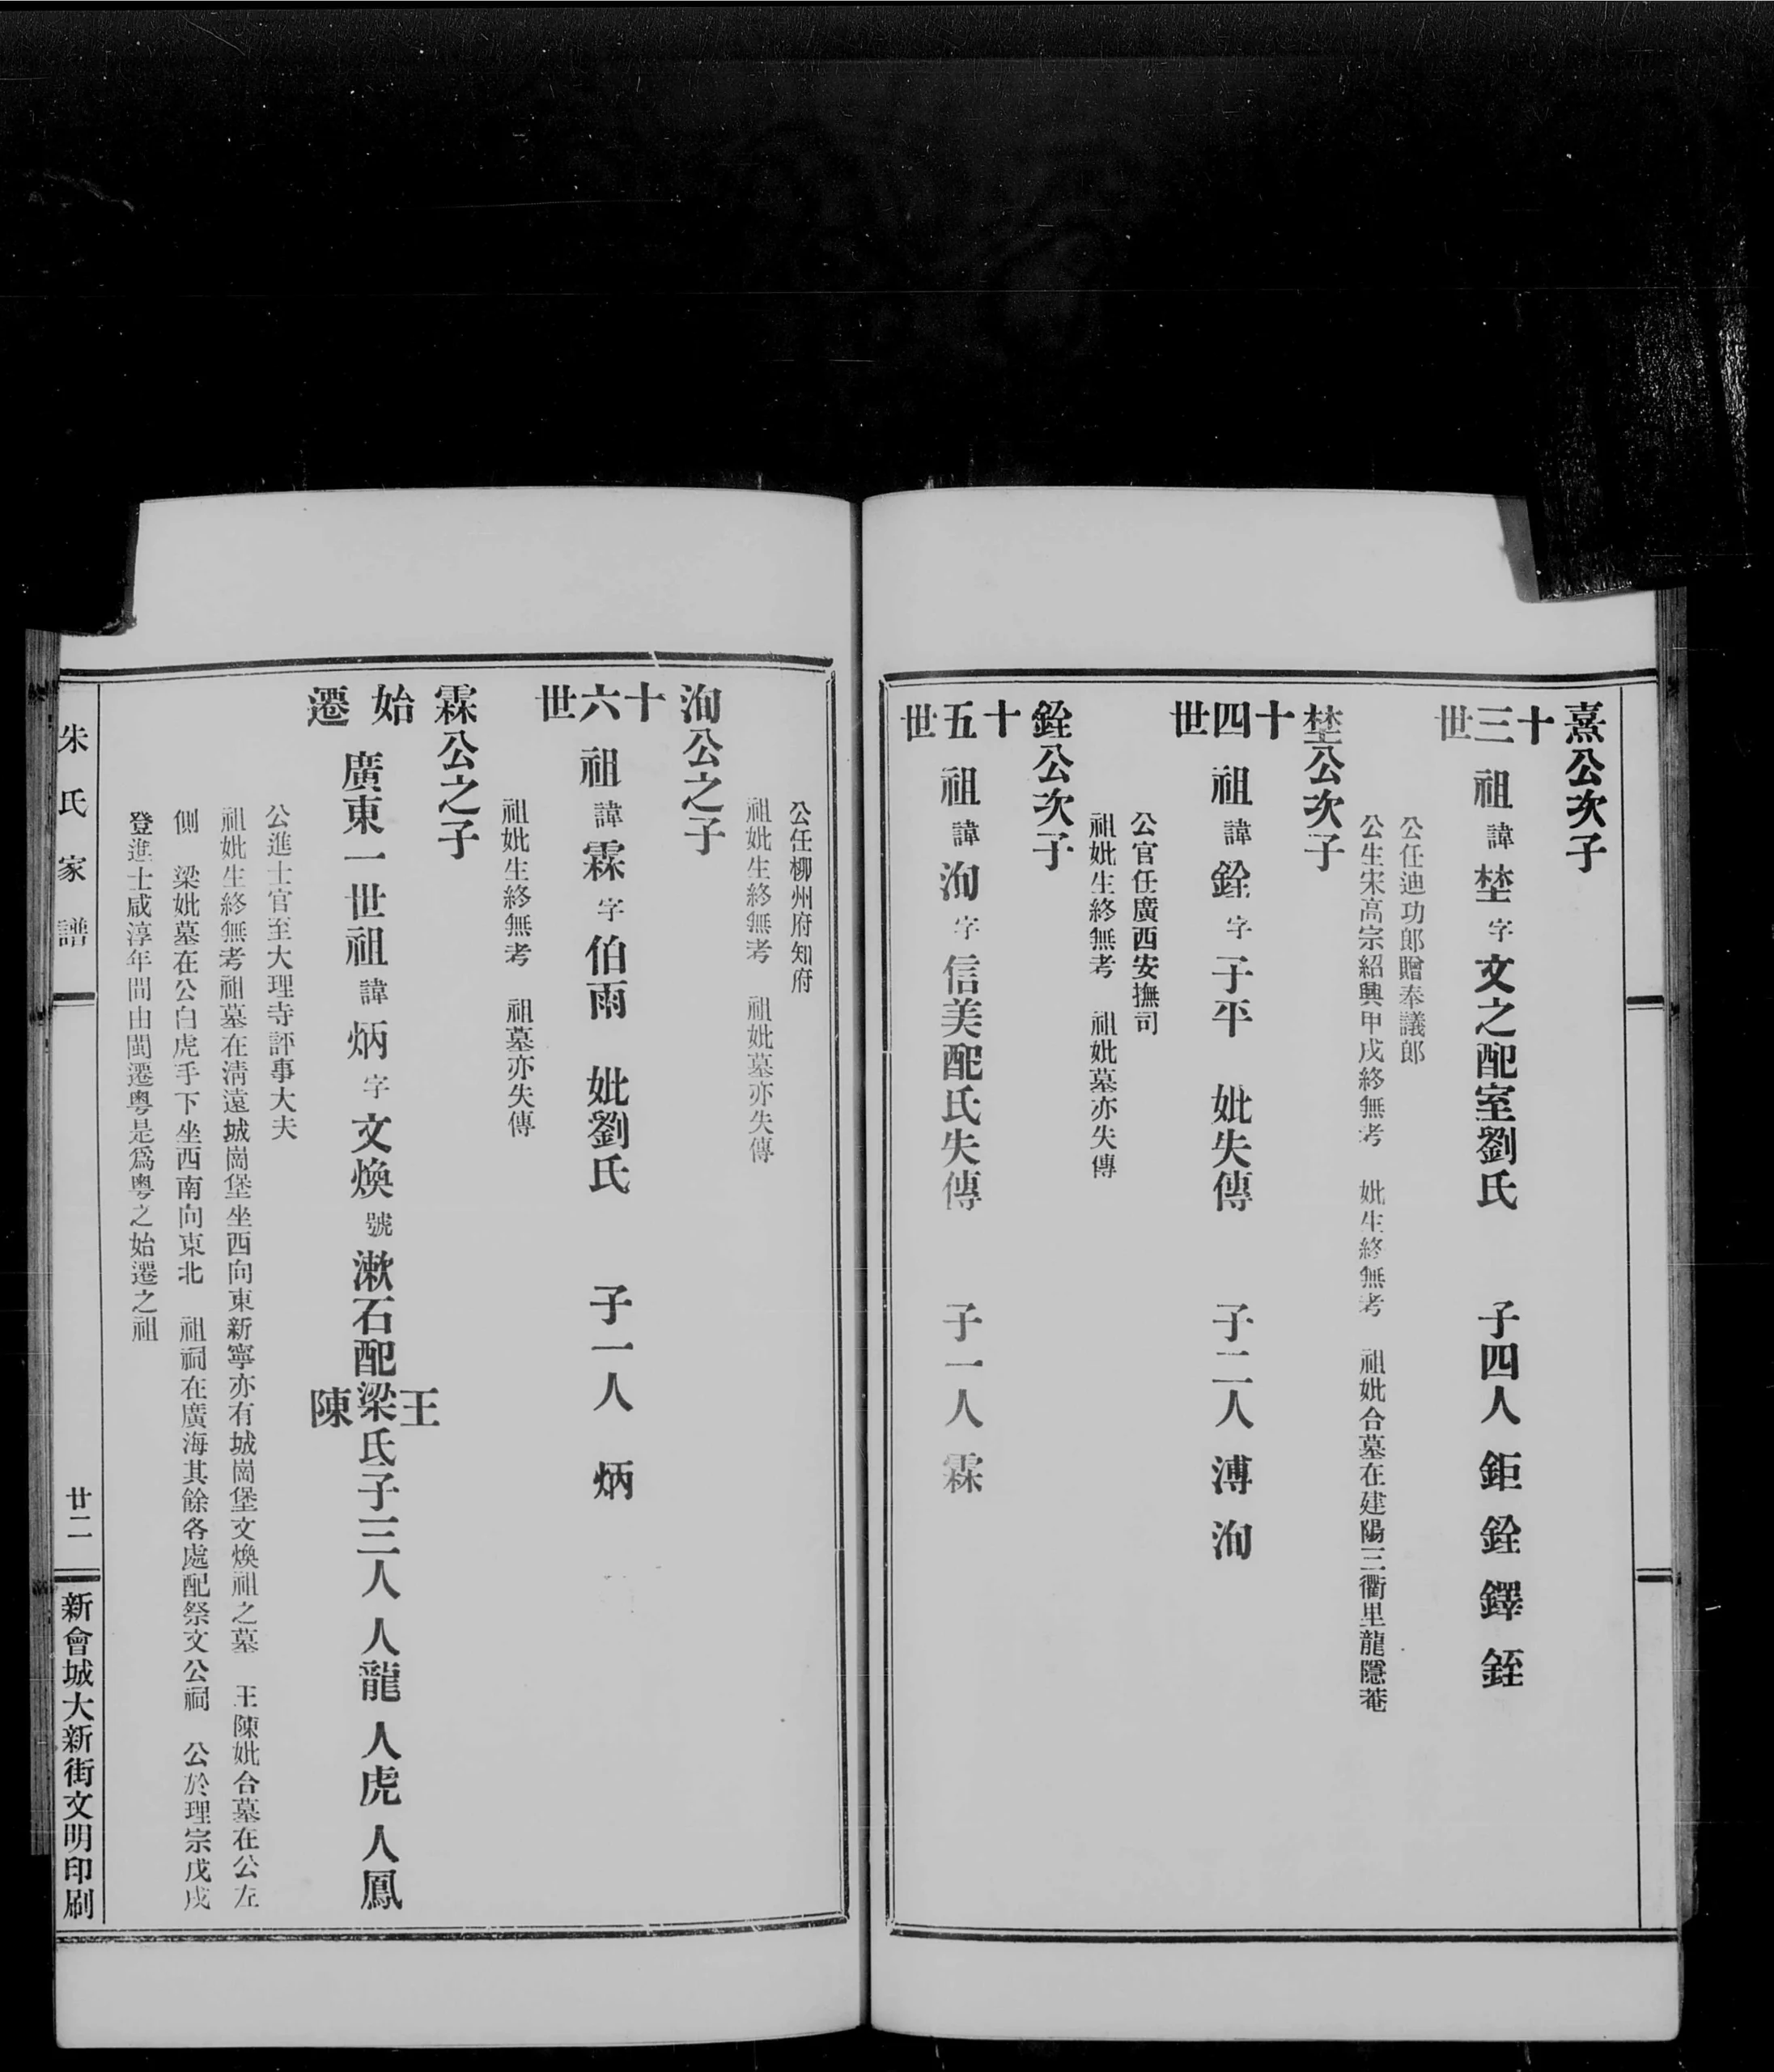 熹公次子
十三世 祖諱埜字文之配室劉氏 子四人 鉅 銓 鐸 銍
公任迪功郎贈奉議郎
公生宋高宗紹興甲戌終無考 妣生終無考 祖妣合墓在建陽三衢里龍隱菴
埜公次子
十四世 祖諱銓字子平 妣失傳 子二人 溥 洵
公官任廣西安撫司
祖妣生終無考 祖妣墓亦失傳
銓公次子
十五世 祖諱洵字信美配氏失傳 子一人 霖
公任柳州府知府
祖妣生終無考 祖妣墓亦失傳
洵公之子
十六世 祖諱霖字伯雨 妣劉氏 子一人 炳
祖妣生終無考 祖墓亦失傳
霖公之子
始遷 廣東一世祖諱炳字文煥號漱石配王梁陳氏子三人 人龍 人虎 人鳳
公進士官至大理寺評事大夫
祖妣生終無考祖墓在清遠城崗堡坐西向東新寧亦有城崗堡文煥祖之墓 王陳妣合墓在公左
側 梁妣墓在公白虎手下坐西南向東北 祖祠在廣海其餘各處配祭文公祠 公於理宗戊戌
登進士咸淳年間由閩遷粵是爲粵之始遷之祖
朱氏家譜
廿二
新會城大新街文明印刷